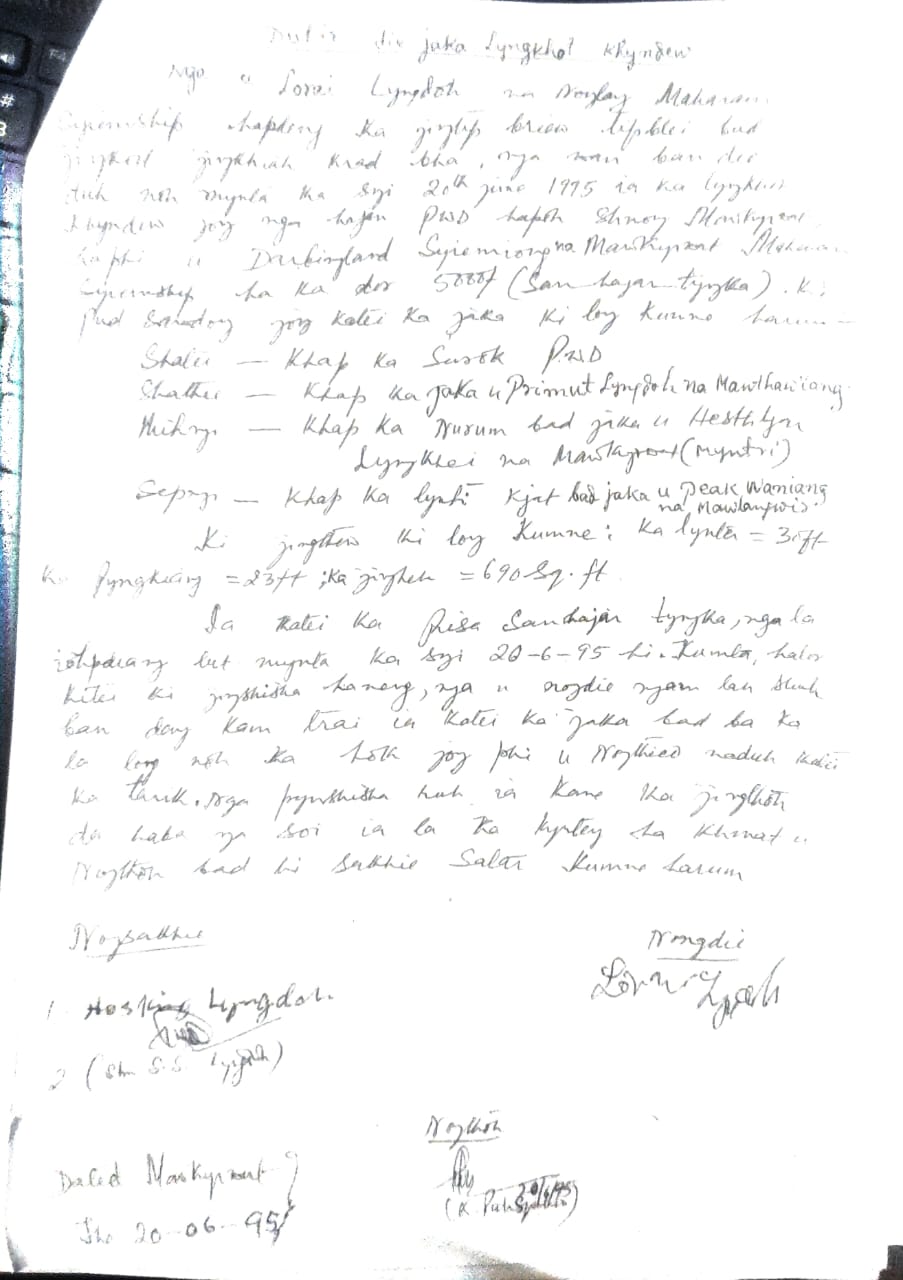 die jaka Lyngkhot Khyndew
Nga u Lorni Lyngdoh na Nonglang Maharam
Syiemship hapdeng ka jinglip briew lipblei bad
jingkhiah krad bha, nga mon ban die
duh noh mynta ka sngi 20th June 1995 ia ka lyngkhot
khyndew jong nga hajan PWD hapoh Shnong Mawkyrwat
ha phi u Darbingland Syiemiong na Mawkyrwat Maharam
Syiemship ha ka dor 5000/- (San hajar tyngka). Ki
pud samdong jong katei ka jaka ki long kumne harum -
Shatei — Khap ka Surok PWD
Shathie — Khap ka jaka u Primut Lyngdoh na Mawthawiang
Mihngi — Khap ka Nurum bad jaka u Hesthlyn
Lyngkhoi na Mawkyrwat (Myntri)
Sepngi — Khap ka lynti kjat bad jaka u Peak Waniang
na Mawlangwir
Ki jingthew ki long kumne: ka lynter = 30ft
Ka Pyngkiang = 23ft ; ka jingheh = 690 Sq. ft
Ia katei ka pisa San hajar tyngka, nga la
iohpdiang lut mynta ka sngi 20-6-95 hi. Kumta, halor
kitei ki jingshisha haneng, nga u nongdie ngam lah shuh
ban dang kam trai ia katei ka jaka bad ba ka
la long noh ka hok jong phi u Nongthied naduh katei
ka tarik. Nga pynshisha ruh ia kane ka jingthoh
da kaba nga soi ia la ka kyrteng ha khmat u
Nongthoh bad ki sakhie Salar kumne harum
Nongsakhie
Nongdie
1. Hosking Lyngdoh
2 (Shri S.S. Lyngdoh)
Nongthoh
20/6/95
Dated Mawkyrwat
The 20-06-95